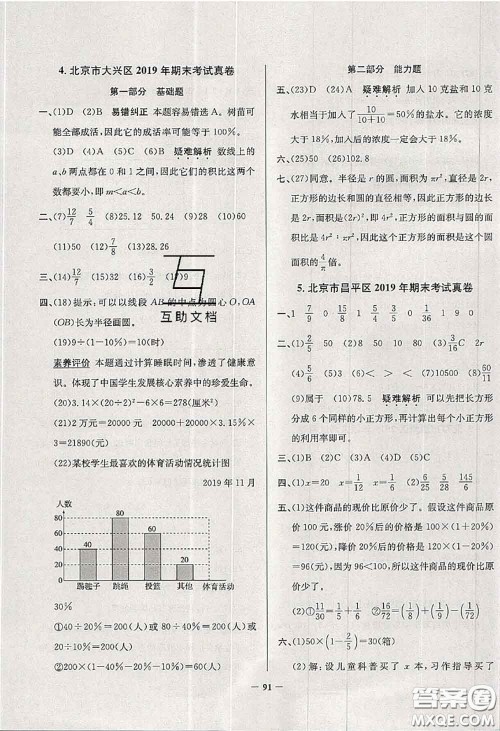 4. 北京市大兴区 2019 年期末考试真卷
第一部分 基础题
一、(1)D (2)B 易错纠正 本题容易错选 A。树苗可
能全部成活，因此它的成活率可能等于 100%。
(3)D (4)A (5)C 疑难解析 数线上的
a,b 两点都在 0 和 1 之间，因此它们的积比这两个
数都要小，即 m<a<b。
二、(7)12/7 5/4 (8)25.12 50.24 (9)28 (10)60
(11)60 (12)7/8 (13)28.26
三、(14)12/7 (15)8/9 (16)3/2 (17)9
四、(18)提示：可以以线段 AB 的中点为圆心 O，OA
(OB)长为半径画圆。
(19)9÷(1-1/10)=10(时)
素养评价 本题通过计算睡眠时间，渗透了健康意
识。体现了中国学生发展核心素养中的珍爱生命。
(20)3.14×(20÷2)²-6×6=278(厘米²)
(21)2 万元=20000 元 20000×
3.15%×3+20000=21890(元)
(22)某校学生最喜欢的体育活动情况统计图
2019 年 11 月
人数
80
60
40
20
0
40
80
60
20
踢毽子 跳绳 投篮 其他 体育活动
30%
①40÷20%=200(人) 200×40%=80(人)
②200×(1-20%-40%-10%)=60(人)
第二部分 能力题
五、(23)D (24)A 疑难解析 加入 10 克盐和 10 克
水相当于加入了 10/(10+10)=50%的盐水。它的浓度
大于 18%，加入后的浓度一定会大于 18%。
六、(25)50 (26)102.8
七、(27)同意。半径是 r 的圆，面积是 πr²，正方形
的边长和圆的直径相等，因此正方形的边长是
2r，面积是(2r)²，即正方形的面积与圆的面
积比是 4r²:πr²=4/π，因此，正方形的面积是圆
面积的4/π倍。
5. 北京市昌平区 2019 年期末考试真卷
(5)3/5 (6)< < > < (7)30 (8)50
(9)属于 (10)78.5 疑难解析 可以先把长方形
分成 6 个同样的小正方形，再计算出每个小正方形
的利用率即可。
三、(1)B (2)D (3)C (4)A (5)D
四、(1)x=20 x=1/2
五、(1)这件商品的现价比原价少了。假设这件商品
原价 100 元，涨价 20%后的价格是 100×(1+20%)
=120(元)，降价 20%后的价格是 120×(1-
20%)=96(元)，96<100。所以这件商品的现价
比原价少了。
六、(1)50×(1-2/5)=30(箱)
(2)解：设儿童科普买了 x 本，习作指导买了
91
互助文档
答案圈
MXQE.COM